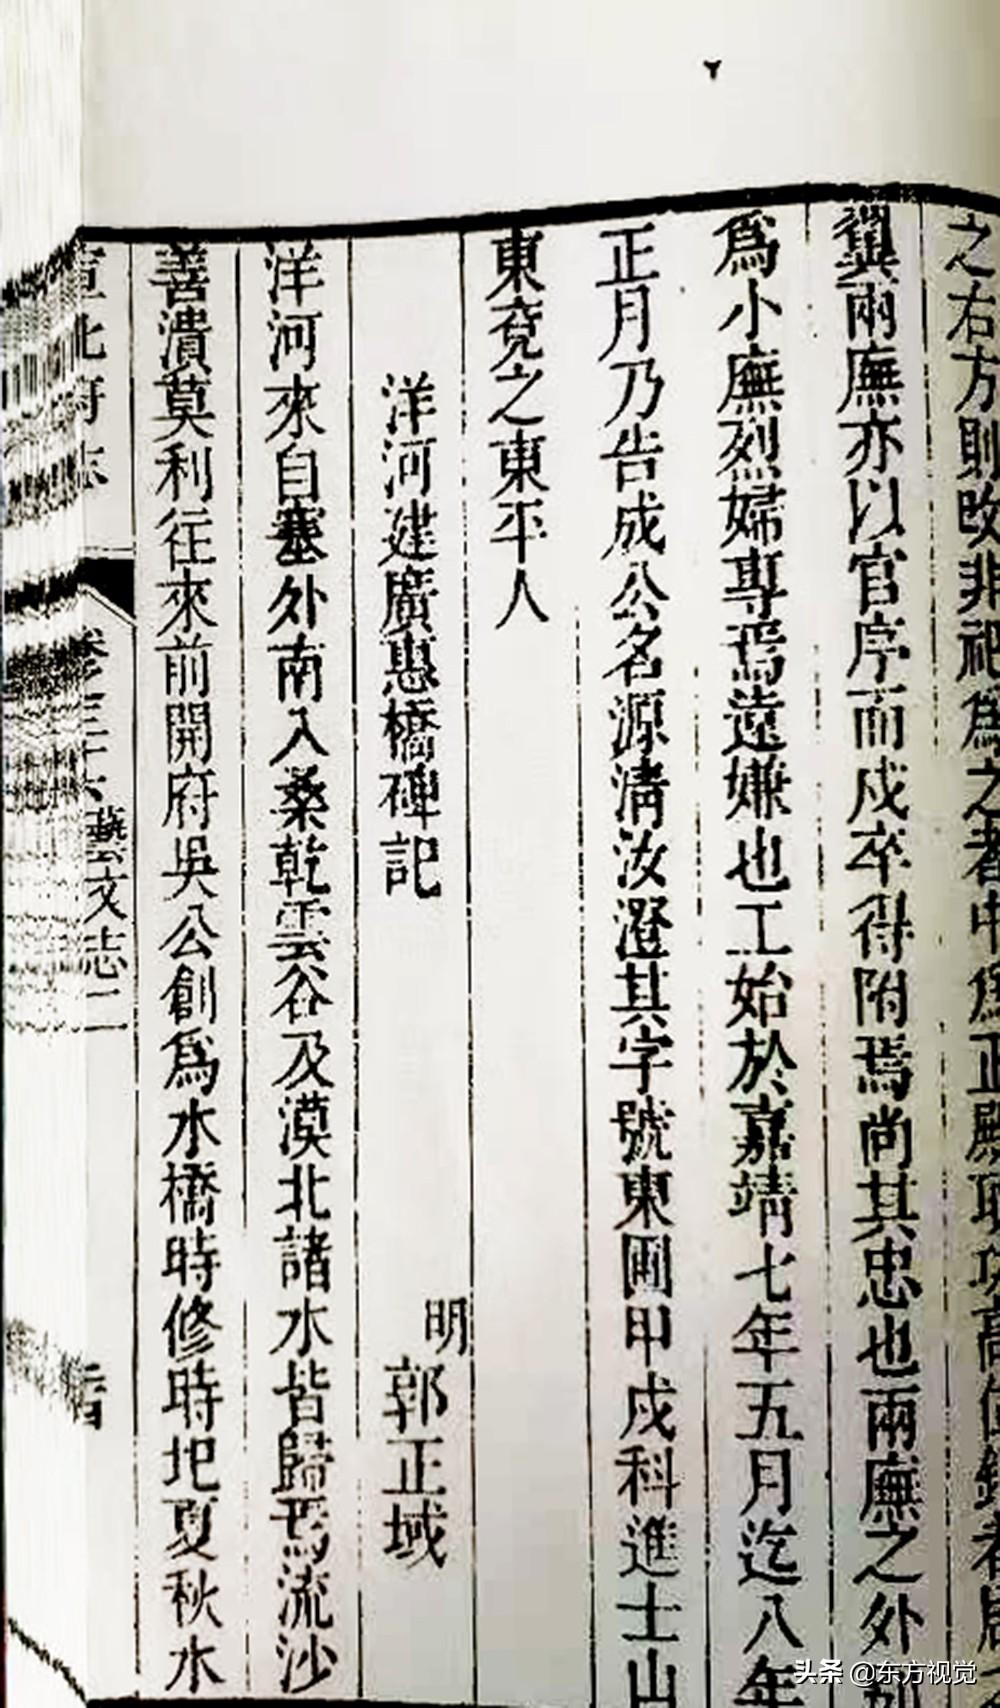 之右方則改非祀爲之者中爲正殿
翼兩廡亦以官序而戍卒得附焉尚其忠也兩廡之外別
爲小廡烈婦專焉遠嫌也工始於嘉靖七年五月迄八年
正月乃告成公名源淸汝澄其字號東圃甲戍科進士山
東兗之東平人
洋河建廣惠橋碑記
明
郭正域
洋河來自塞外南入桑乾雲谷及漠北諸水皆歸焉流沙
善潰莫利往來前開府吳公創爲水橋時修時圯夏秋水
宣化府志
藝文志二
头条 @东方视觉